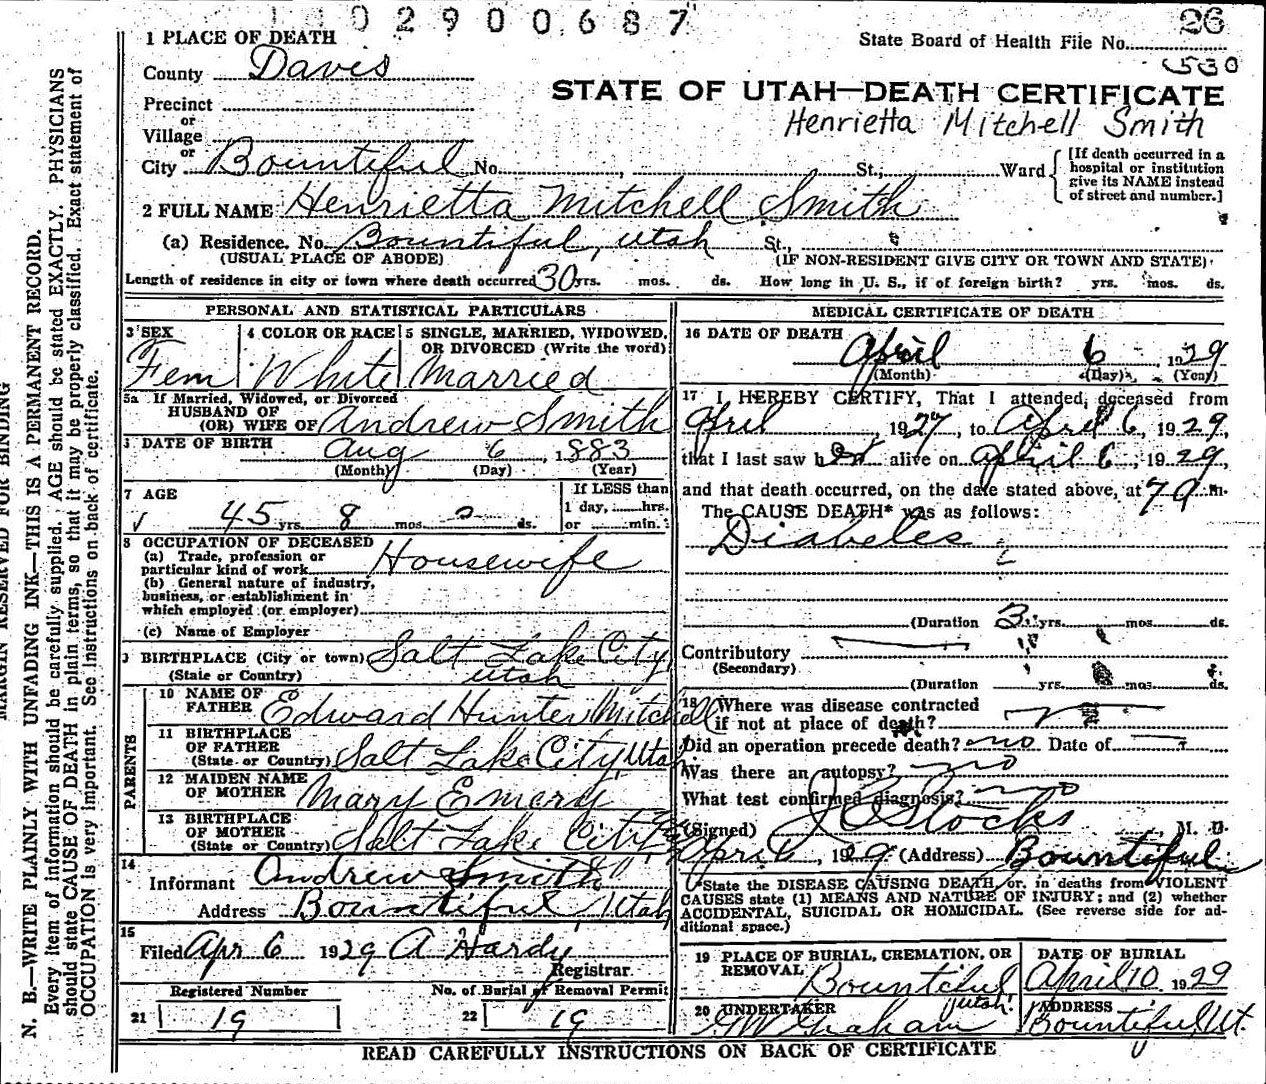 02900687
26
State Board of Health File No.
530
1 PLACE OF DEATH
County Davis
STATE OF UTAH—DEATH CERTIFICATE
Henrietta Mitchell Smith
Precinct
or
Village
or
City Bountiful No. , St.; Ward
[If death occurred in a
hospital or institution
give its NAME instead
of street and number.]
2 FULL NAME Henrietta Mitchell Smith
(a) Residence. No. Bountiful, Utah St.,
(USUAL PLACE OF ABODE) (IF NON-RESIDENT GIVE CITY OR TOWN AND STATE)
Length of residence in city or town where death occurred 30 yrs. mos. ds. How long in U. S., if of foreign birth? yrs. mos. ds.
PERSONAL AND STATISTICAL PARTICULARS
3 SEX
Fem
4 COLOR OR RACE
White
5 SINGLE, MARRIED, WIDOWED,
OR DIVORCED (Write the word)
Married
5a If Married, Widowed, or Divorced
HUSBAND OF
(OR) WIFE OF Andrew Smith
DATE OF BIRTH Aug 6, 1883
(Month) (Day) (Year)
7 AGE
45 yrs. 8 mos. ds.
If LESS than
1 day, hrs.
or min.
8 OCCUPATION OF DECEASED
(a) Trade, profession or
particular kind of work Housewife
(b) General nature of industry,
business, or establishment in
which employed (or employer)
(c) Name of Employer
BIRTHPLACE (City or town) Salt Lake City
(State or Country) Utah
PARENTS
10 NAME OF
FATHER Edward Hunter Mitchell
11 BIRTHPLACE
OF FATHER
(State or Country) Salt Lake City, Utah
12 MAIDEN NAME
OF MOTHER Mary Emery
13 BIRTHPLACE
OF MOTHER
(State or Country) Salt Lake City
14
Informant Andrew Smith
Address Bountiful, Utah
15
Filed Apr 6 1929 A Hardy
Registrar.
Registered Number No. of Burial or Removal Permit
21 19 22 19
MEDICAL CERTIFICATE OF DEATH
16 DATE OF DEATH
April 6, 1929
(Month) (Day) (Year)
17 I HEREBY CERTIFY, That I attended deceased from
April, 1927, to April 6, 1929,
that I last saw her alive on April 6, 1929,
and that death occurred, on the date stated above, at 7 a m.
The CAUSE DEATH* was as follows:
Diabetes
(Duration 3 yrs. mos. ds.
Contributory
(Secondary)
(Duration yrs. mos. ds.
18 Where was disease contracted
if not at place of death?
Did an operation precede death? no Date of
Was there an autopsy? no
What test confirmed diagnosis? no
(Signed) J C Stocks M. D.
April 6, 1929 (Address) Bountiful
*State the DISEASE CAUSING DEATH, or, in deaths from VIOLENT
CAUSES state (1) MEANS AND NATURE OF INJURY; and (2) whether
ACCIDENTAL, SUICIDAL OR HOMICIDAL. (See reverse side for ad-
ditional space.)
19 PLACE OF BURIAL, CREMATION, OR
REMOVAL Bountiful
Utah.
DATE OF BURIAL
April 10, 1929
20 UNDERTAKER
G W Graham
ADDRESS
Bountiful Ut.
READ CAREFULLY INSTRUCTIONS ON BACK OF CERTIFICATE
MARGIN RESERVED FOR BINDING
N. B.—WRITE PLAINLY WITH UNFADING INK—THIS IS A PERMANENT RECORD.
Every item of information should be carefully supplied. AGE should be stated EXACTLY. PHYSICIANS
should state CAUSE OF DEATH in plain terms, so that it may be properly classified. Exact statement of
OCCUPATION is very important. See instructions on back of certificate.